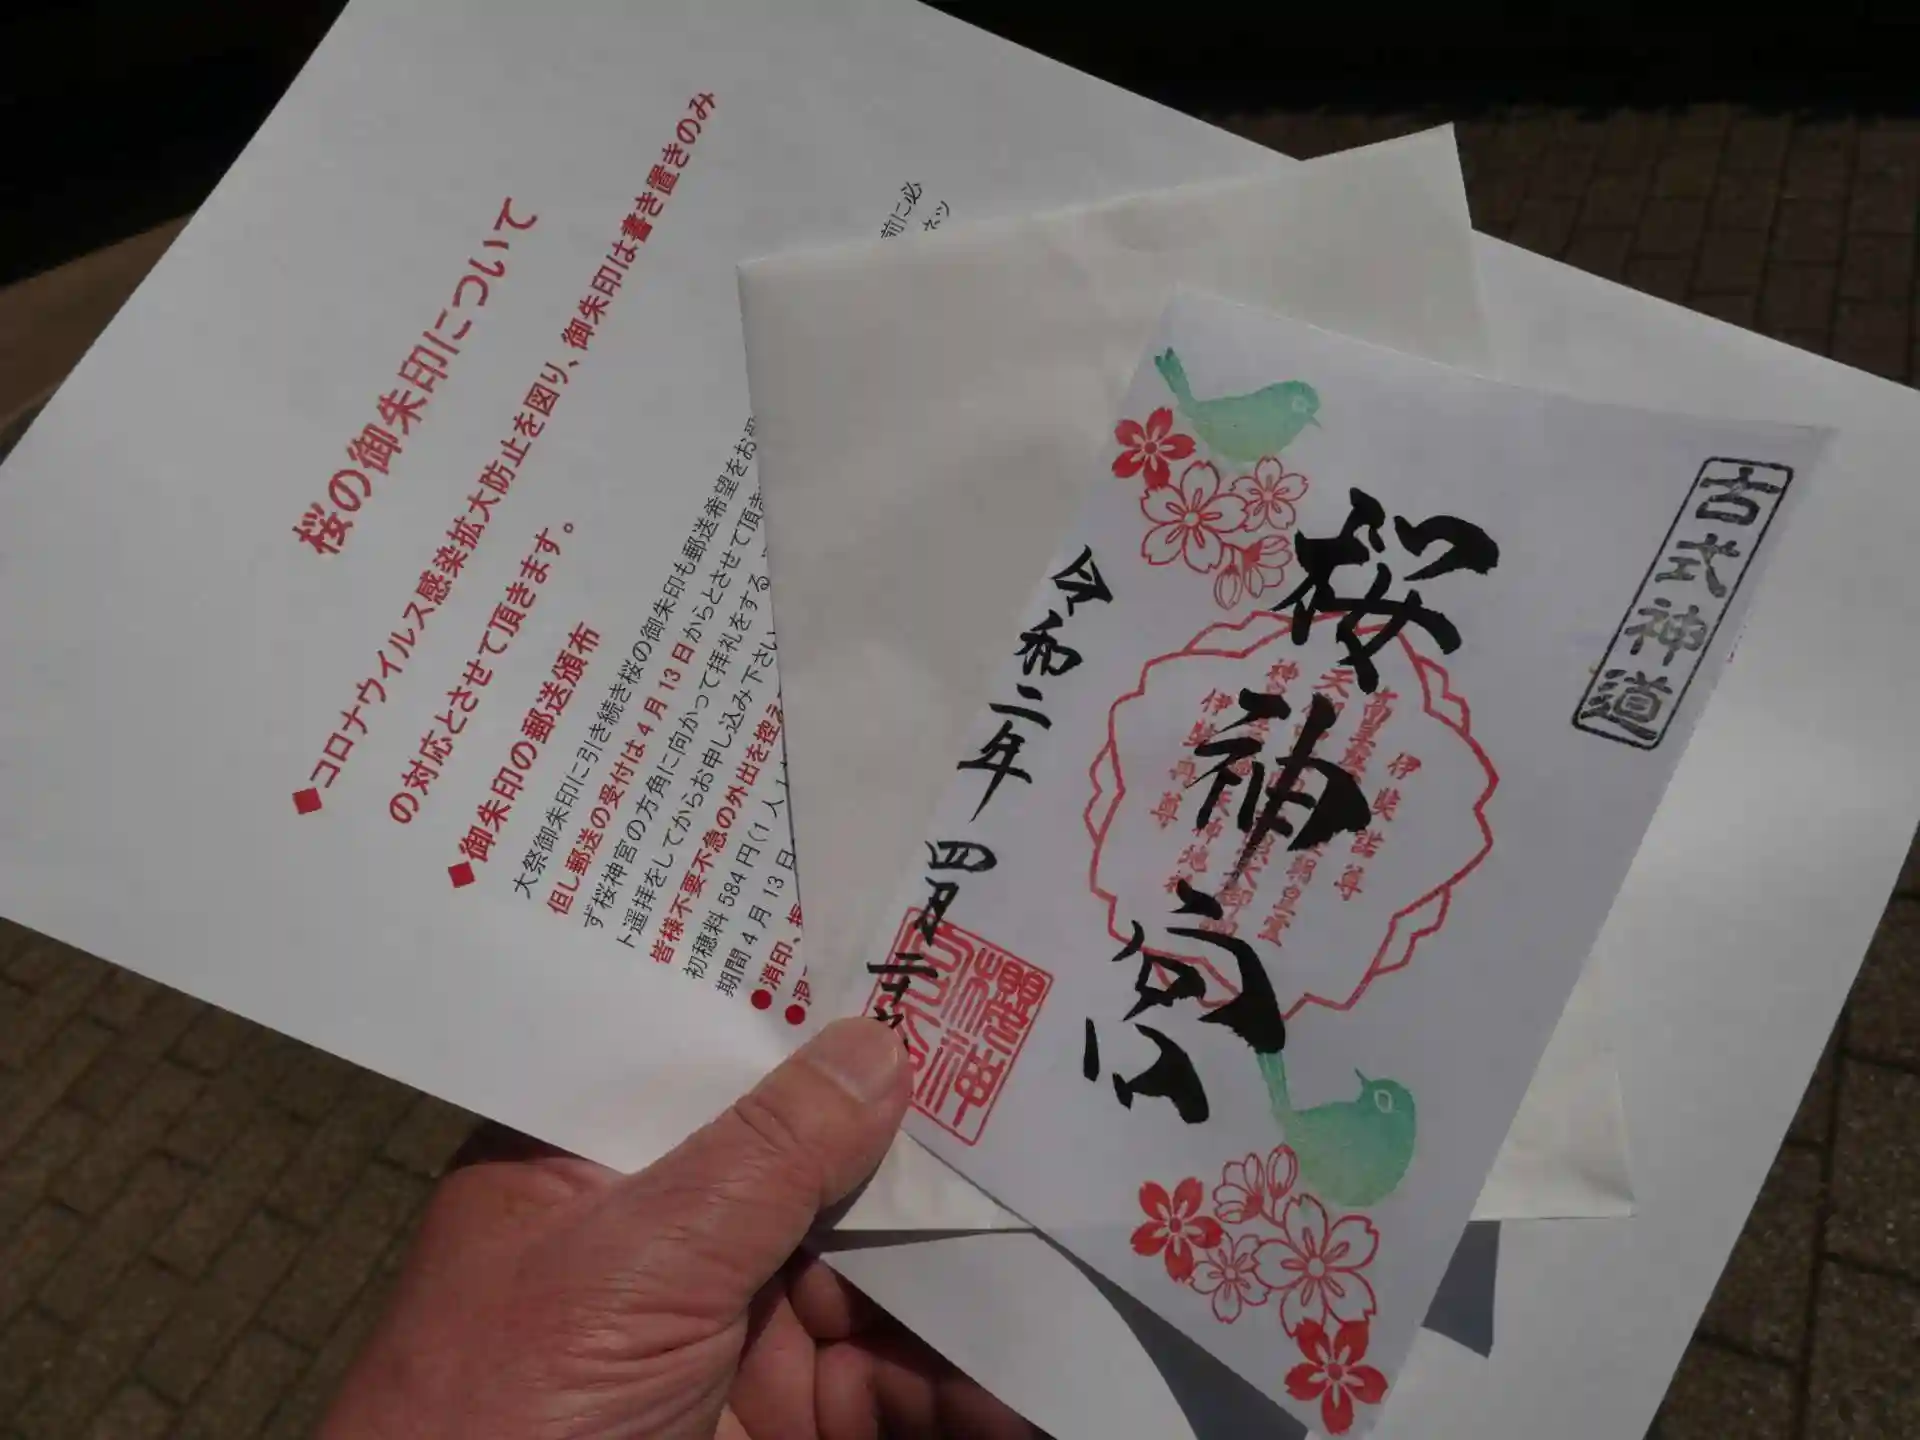 桜の御朱印について
◆コロナウイルス感染拡大防止を図り、御朱印は書き置きのみ
の対応とさせて頂きます。
◆御朱印の郵送頒布
大祭御朱印に引き続き桜の御朱印も郵送希望をお
但し郵送の受付は4月13日からとさせて頂き
前に必
ず桜神宮の方角に向かって拝礼をする
ネッ
ト遥拝をしてからお申し込み下さい
皆様不要不急の外出を控え
初穂料584円(1人1
期間4月13日
●消印、
●
古式神道
桜神宮
伊弉諾尊
伊弉冉尊
令和二年
四月
櫻神